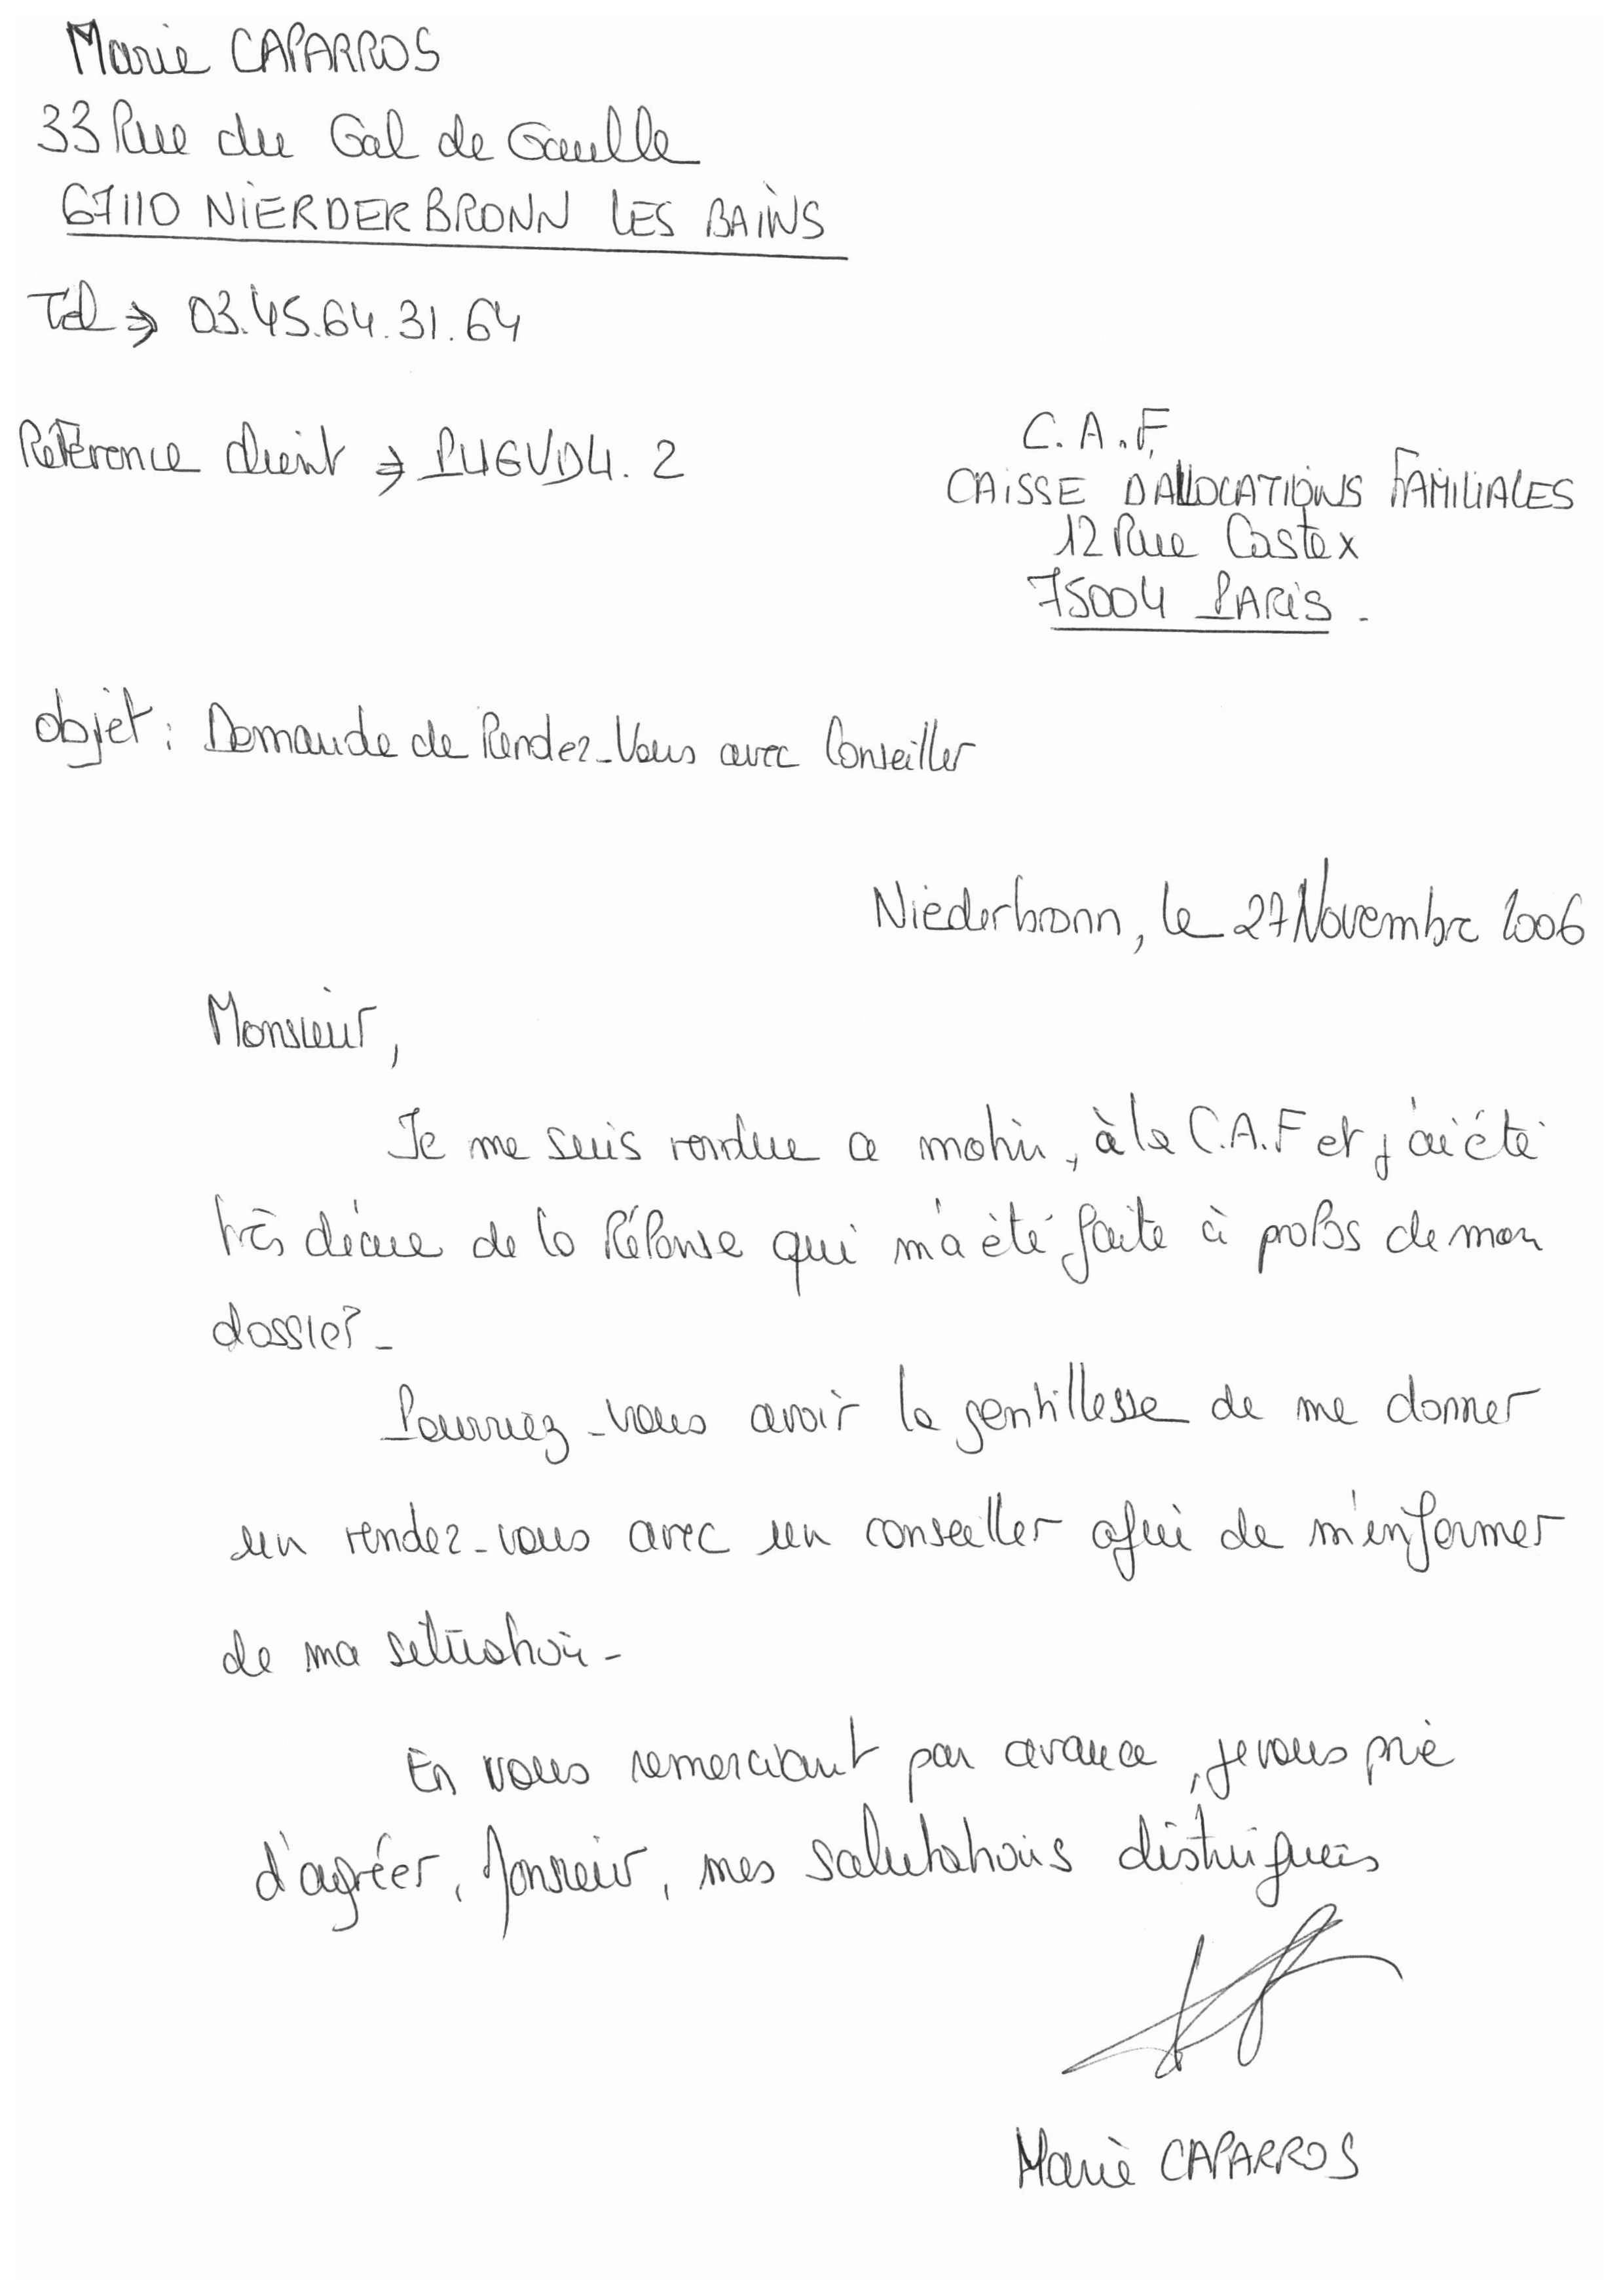 Marie CAPARROS
33 Rue du Gal de Gaulle
67110 NIERDERBRONN LES BAINS
Tél => 03.45.64.31.64
Référence client => PUGVD4.2
C.A.F.
CAISSE D'ALLOCATIONS FAMILIALES
12 Rue Castex
75004 PARIS.
Objet : Demande de Rendez-Vous avec Conseiller
Niederbronn, le 27 Novembre 2006
Monsieur,
Je me suis rendue ce matin, à la C.A.F et j'ai été
très déçue de la Réponse qui m'a été faite à propos de mon
dossier.
Pourriez-vous avoir la gentillesse de me donner
un rendez-vous avec un conseiller afin de m'informer
de ma situation.
En vous remerciant par avance, je vous prie
d'agréer, Monsieur, mes salutations distinguées
Marie CAPARROS